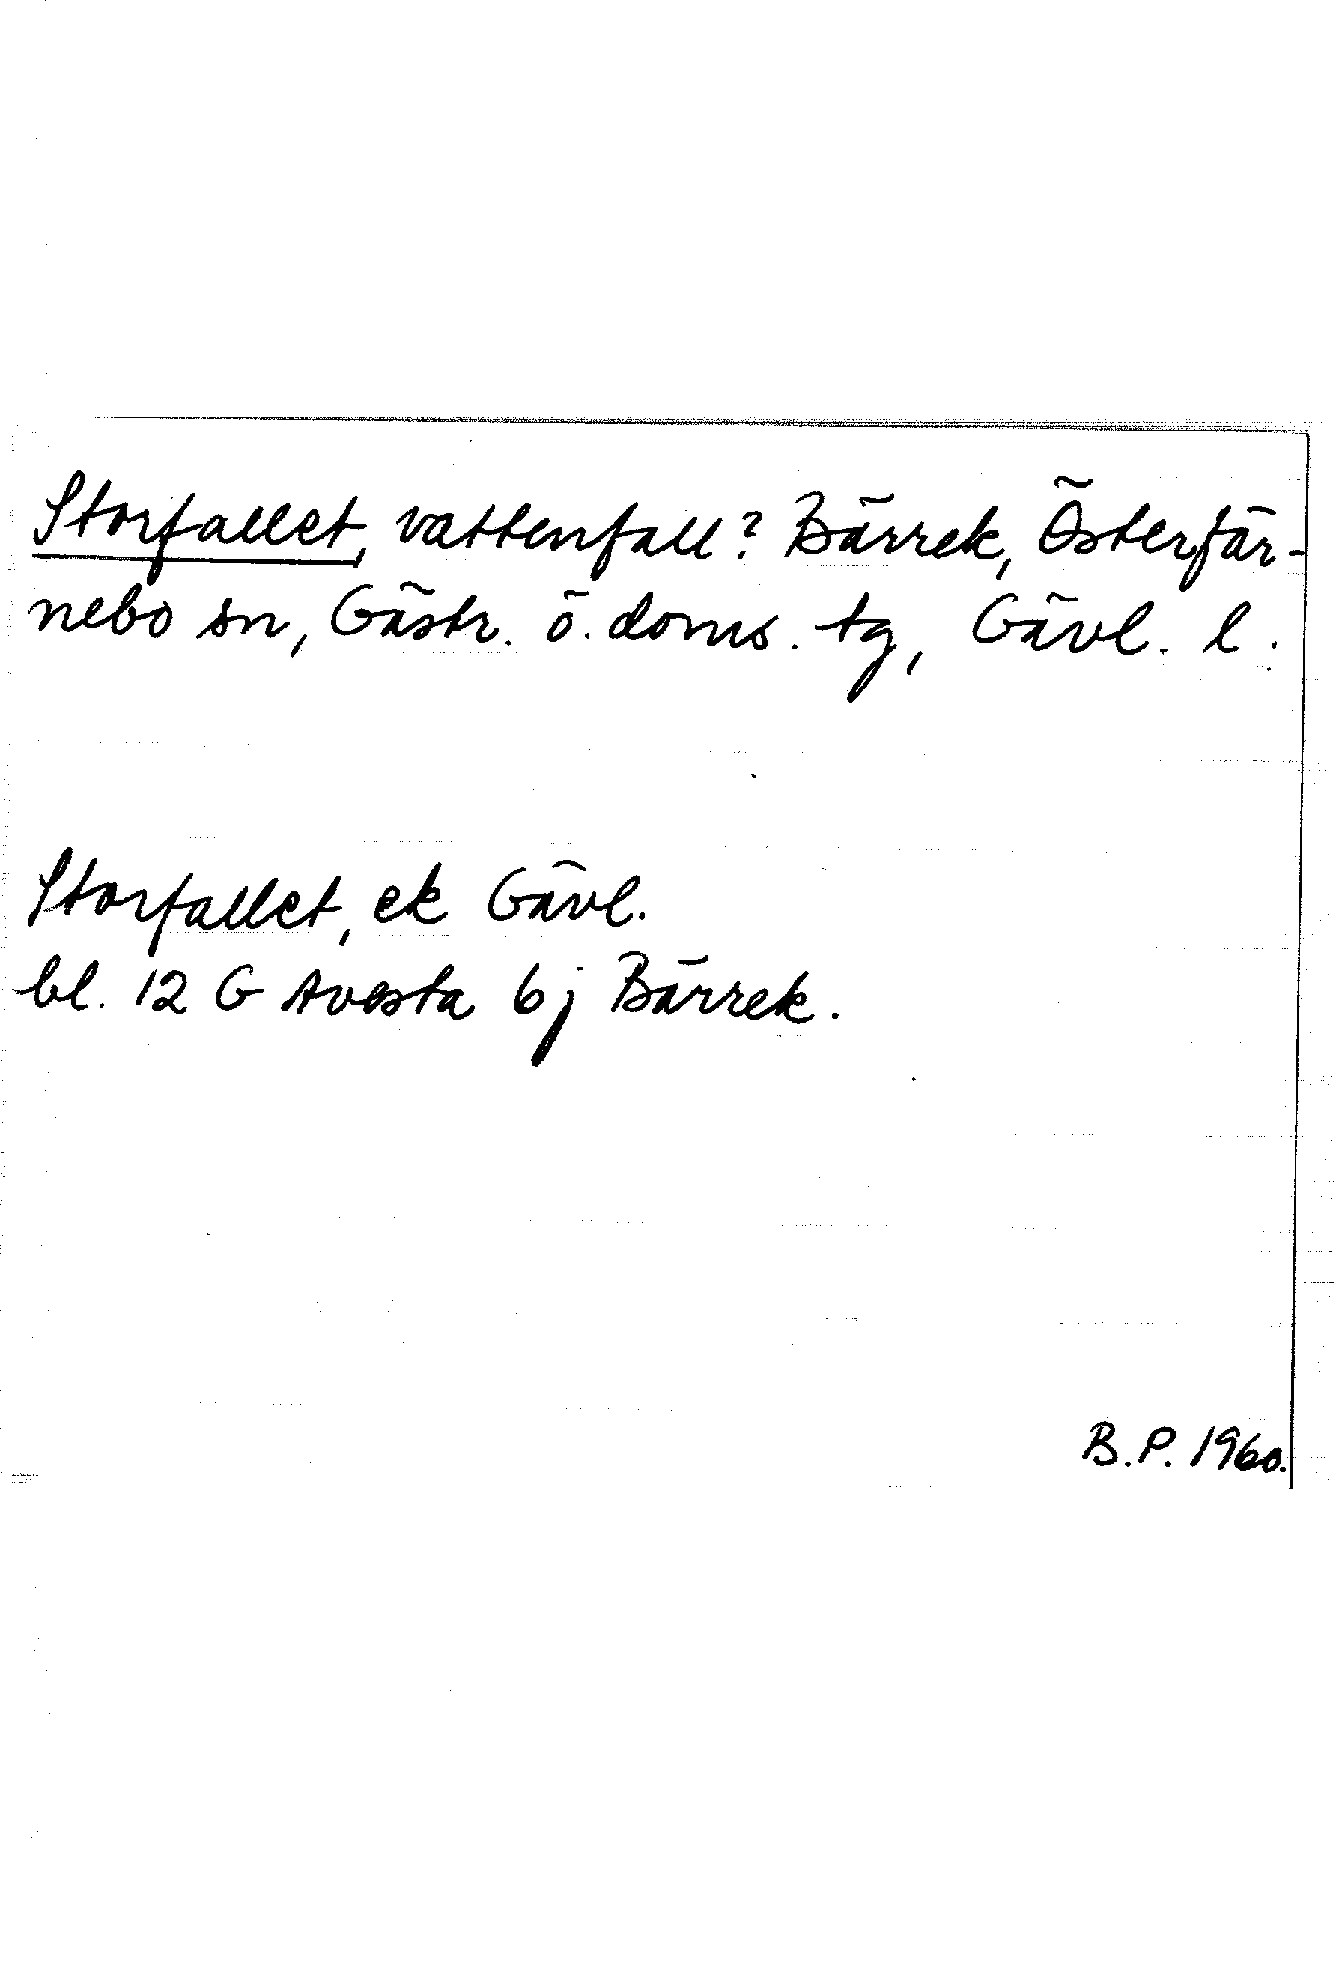 Storfallet, vattenfall? Bärrek, Österfär-
nebo sn, Gästr. ö. doms. tg, Gävl. l.
Storfallet, ek Gävl.
bl. 12 G Avesta 6j Bärrek.
B.P. 1960.